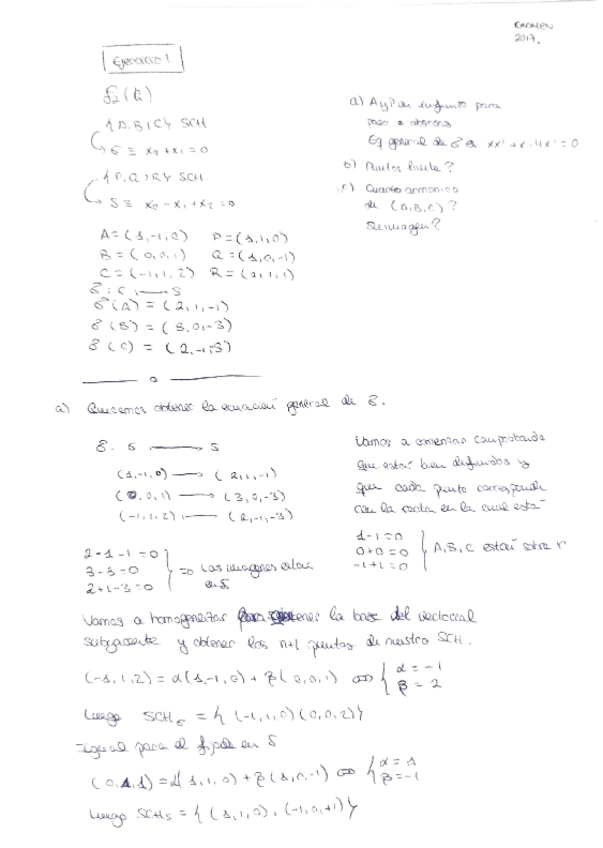 2017.
Ejercicio 1
{A, B, C} SCH
≡ x0 + x1 = 0
{P, Q, R} SCH
S ≡ x0 - x1 + x2 = 0
A = (1, -1, 0) P = (1, 1, 0)
B = (0, 0, 1) Q = (1, 0, -1)
C = (-1, 1, 2) R = (0, 1, 1)
(A) = (2, 1, -1)
(B) = (3, 0, -3)
(C) = (2, -1, -3)
a)
Eq general de σ es xx' + x - 4x' = 0
b) Puntos límite?
c) Cuarto armónico
de (A, B, C)?
Su imagen?
a) Queremos obtener la ecuación general de σ.
(1, -1, 0) → (2, 1, -1)
(0, 0, 1) → (3, 0, -3)
(-1, 1, 2) → (2, -1, -3)
Vamos a comenzar comprobando
que están bien definidos y
que cada punto corresponde
con la recta en la cual está
2 - 1 - 1 = 0
3 - 3 = 0
2 + 1 - 3 = 0
=> Las imágenes están
en S
1 - 1 = 0
0 + 0 = 0
-1 + 1 = 0
A, B, C están sobre r
Vamos a homogeneizar para obtener la base del vectorial
subyacente y obtener los n+1 puntos de nuestro SCH.
(-1, 1, 2) = α(1, -1, 0) + β(0, 0, 1) ⟺ { α = -1
β = 2
Luego SCH = {(-1, 1, 0) (0, 0, 2)}
Igual para el fijado en S
(0, 1, 1) = α(1, 1, 0) + β(1, 0, -1) ⟺ { α = 1
β = -1
Luego SCHs = {(1, 1, 0), (-1, 0, +1)}